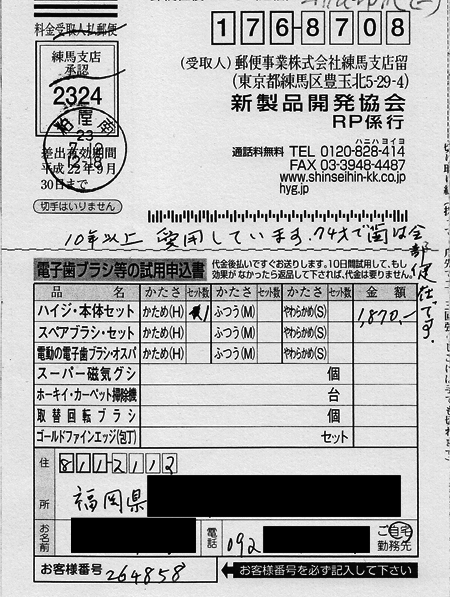 料金受取人払郵便
練馬支店
承認
2324
差出有効期間
平成22年9月
30日まで
切手はいりません
粕屋
23
12-18
176-8708
(受取人) 郵便事業株式会社練馬支店留
(東京都練馬区豊玉北5-29-4)
新製品開発協会
RP係行
ハニハヨイヨ
通話料無料 TEL 0120-828-414
FAX 03-3948-4487
www.shinseihin-kk.co.jp
hyg.jp
10年以上 愛用しています。74才で歯は全部健在です。
電子歯ブラシ等の試用申込書
代金後払いですぐお送りします。10日間試用して、もし
効果がなかったら返品して下されば、代金は要りません。
品 名 かたさ セット数 かたさ セット数 かたさ セット数 金 額
ハイジ・本体セット かため(H) 1 ふつう(M) やわらかめ(S) 1,870.-
スペアブラシ・セット かため(H) ふつう(M) やわらかめ(S)
電動の電子歯ブラシ・オスパ かため(H) ふつう(M) やわらかめ(S)
スーパー磁気グシ 個
ホーキイ・カーペット掃除機 台
取替回転ブラシ 個
ゴールドファインエッジ(包丁) セット
住所 811-2112
福岡県
お名前
電話 092
ご自宅
勤務先
お客様番号 264858
お客様番号を必ず記入して下さい